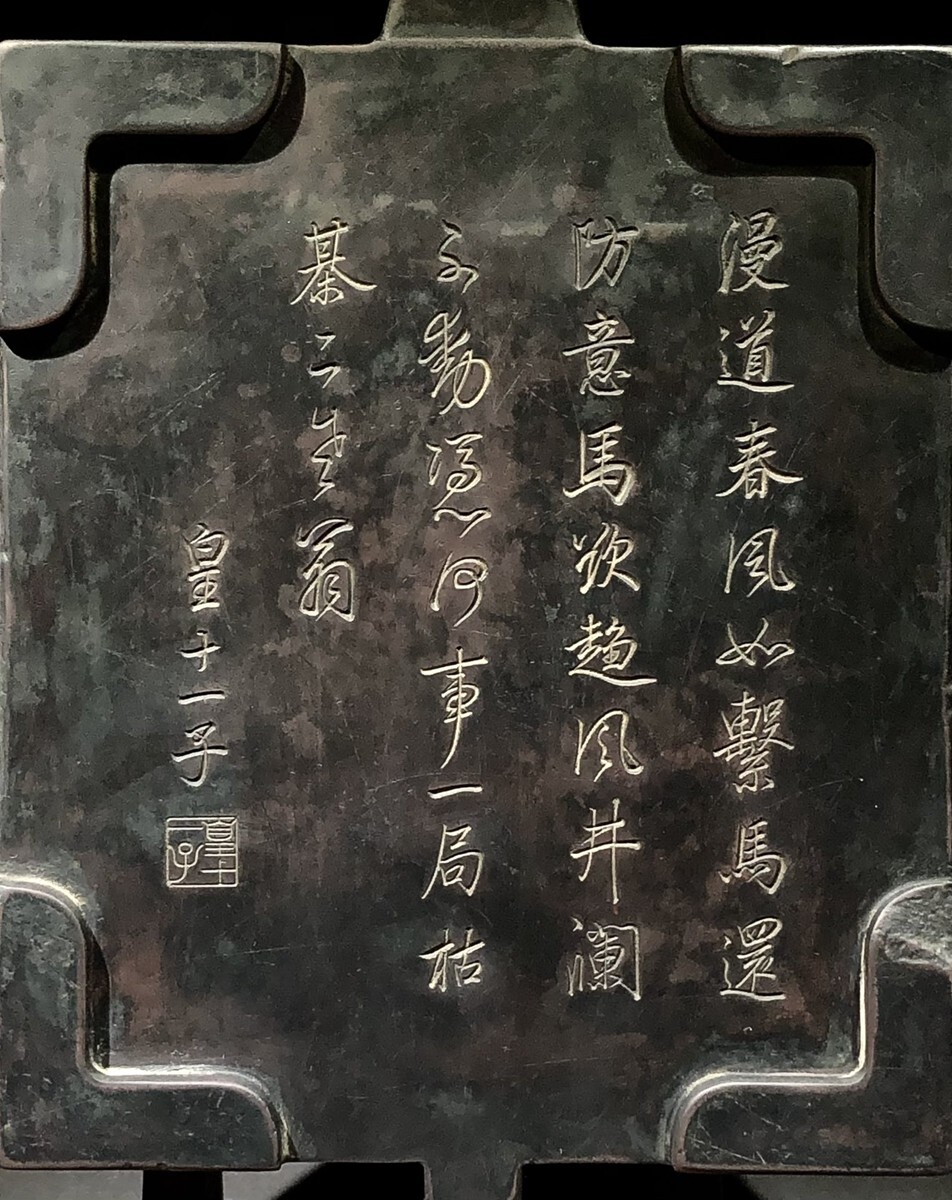 漫道春風如繫馬還
防意馬欲趨風井瀾
不動憑何事一局枯
棊翁
皇十一子
皇十一子